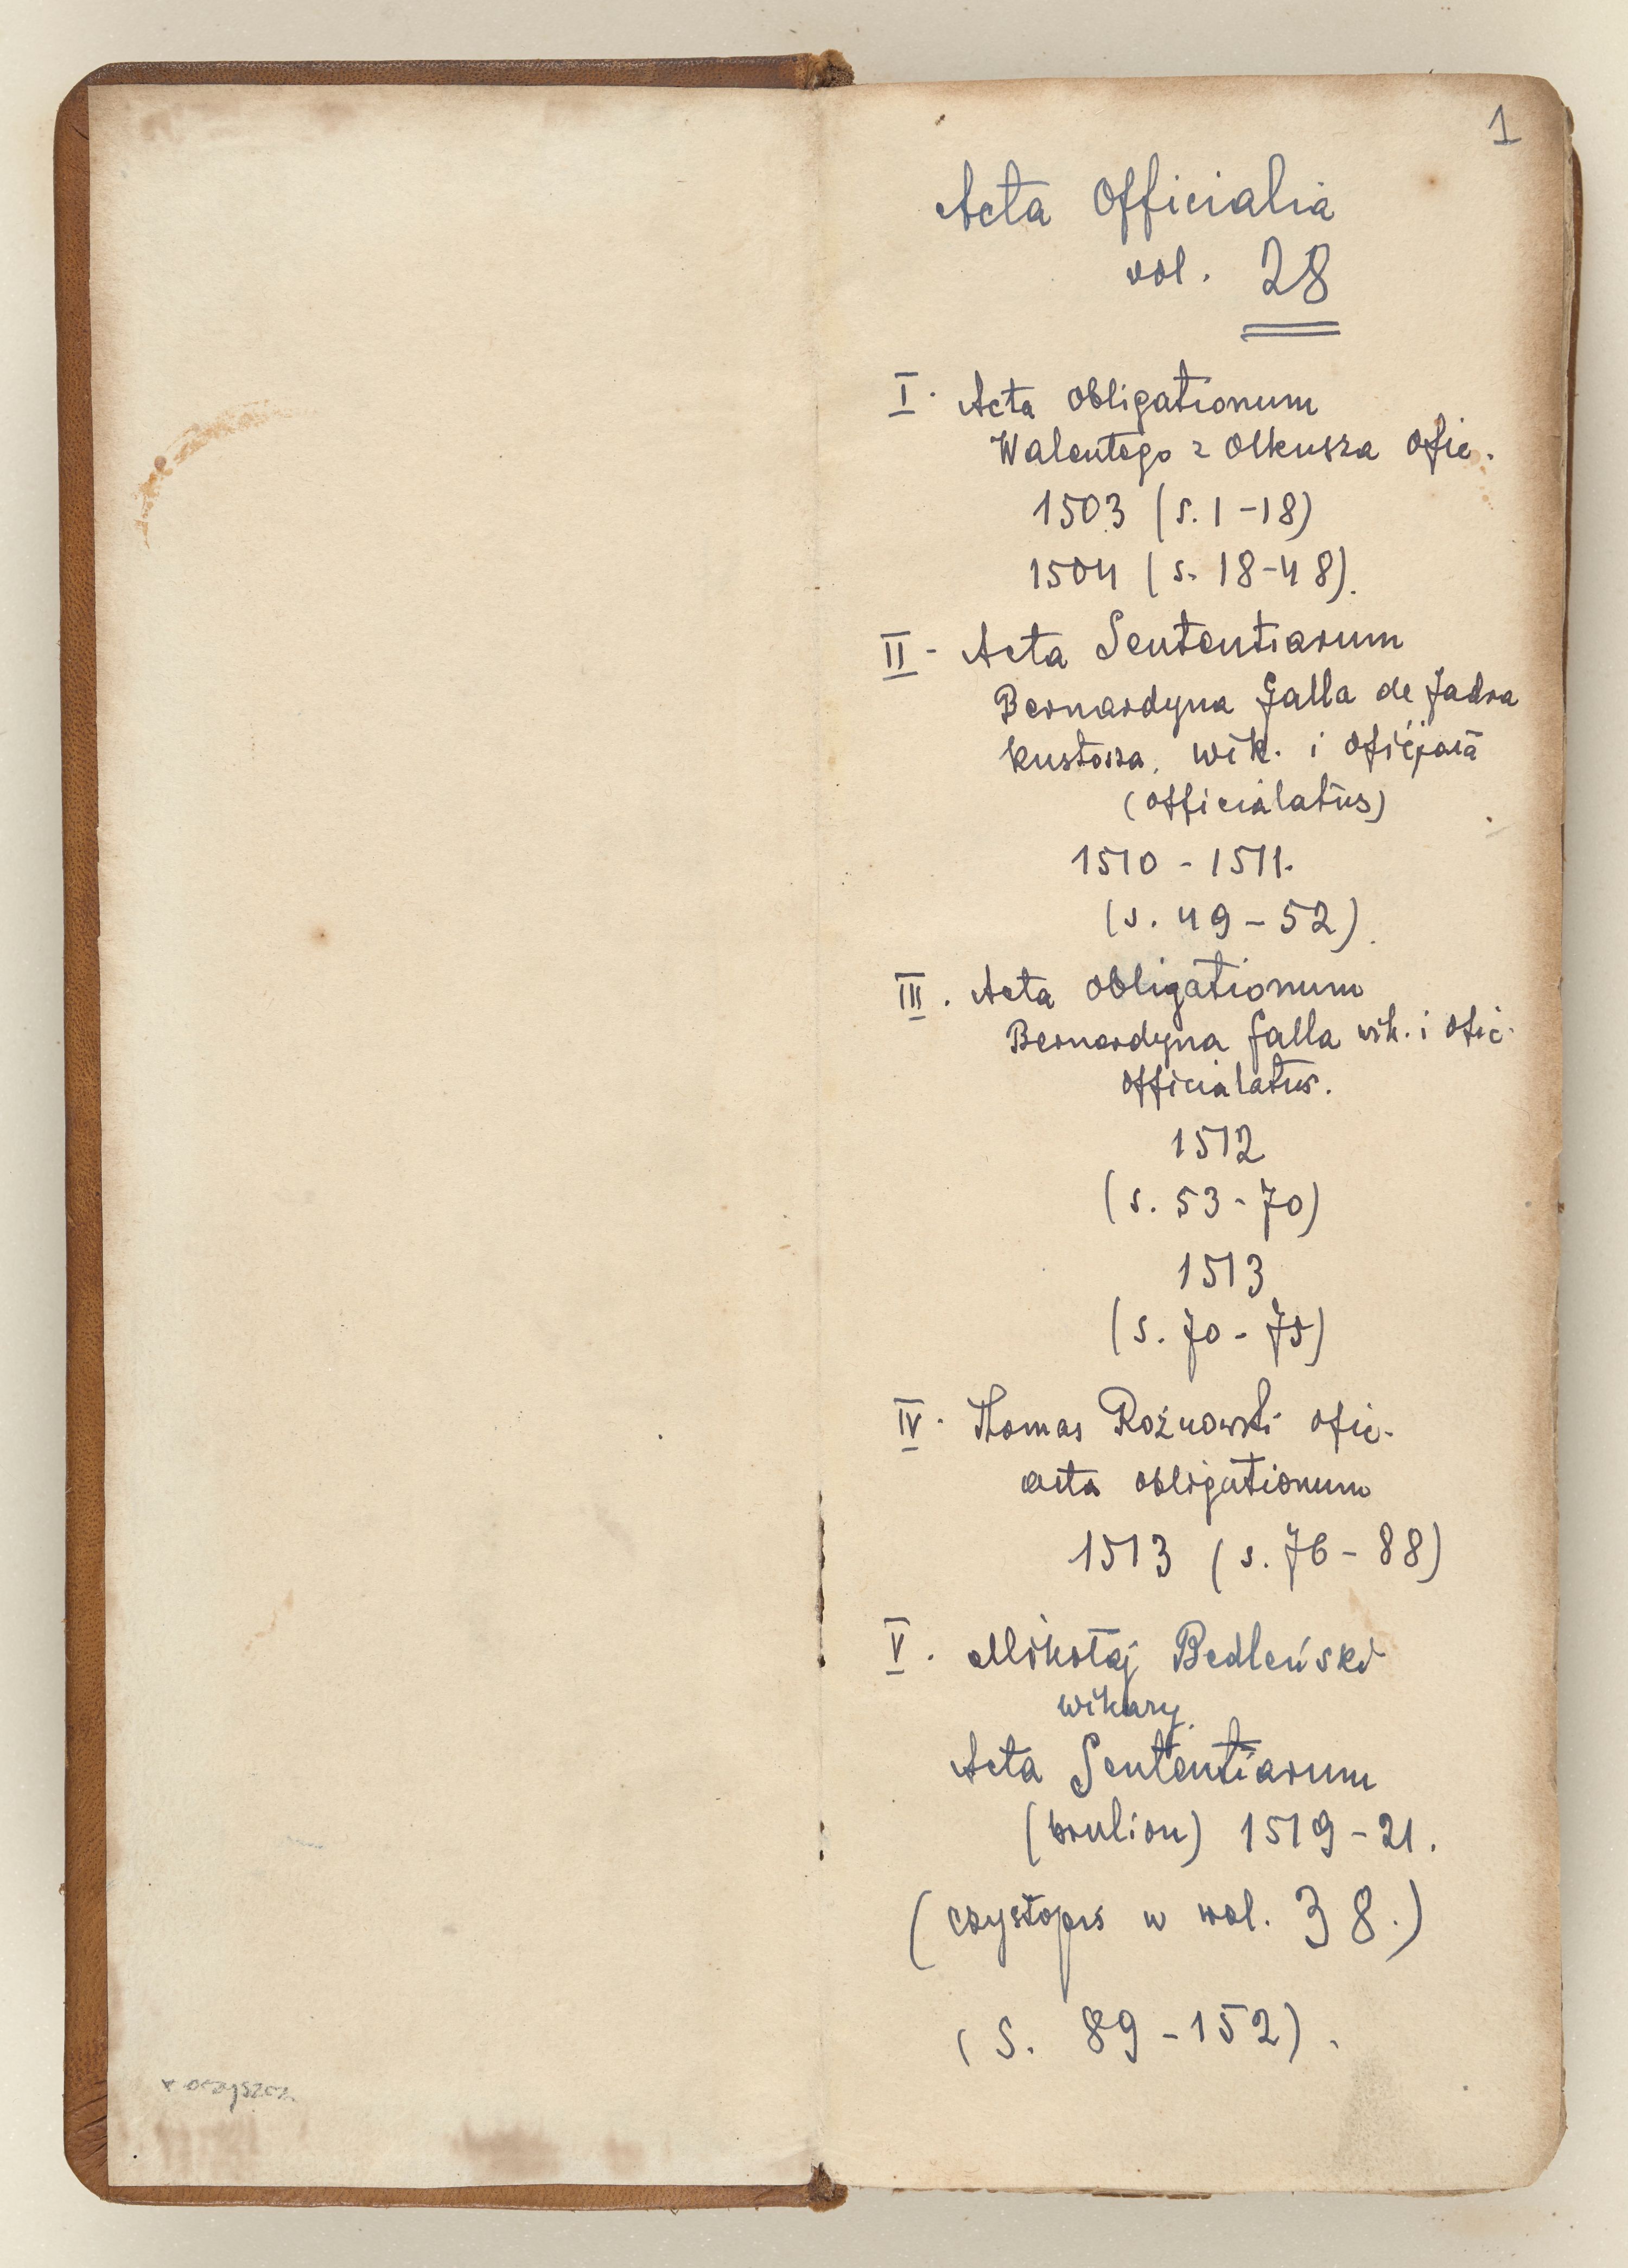 1
Acta Officialia
vol. 28
I. Acta obligationum
Walentego z Olkusza ofic.
1503 (s. 1-18)
1504 (s. 18-48).
II - Acta Sententiarum
Bernardyna Galla de Jadra
kustosza, wik. i oficjała
(officialatus)
1510 - 1511.
(s. 49 - 52).
III. Acta obligationum
Bernardyna Galla wik. i ofic.
officialatus.
1512
(s. 53 - 70)
1513
(s. 70 - 75)
IV. Thomas Rożnowski ofic.
acta obligationum
1513 (s. 76 - 88)
V. Mikołaj Bedleński
wikary.
Acta Sententiarum
(brulion) 1519 - 21.
(czystopis w vol. 38.)
(S. 89 - 152).